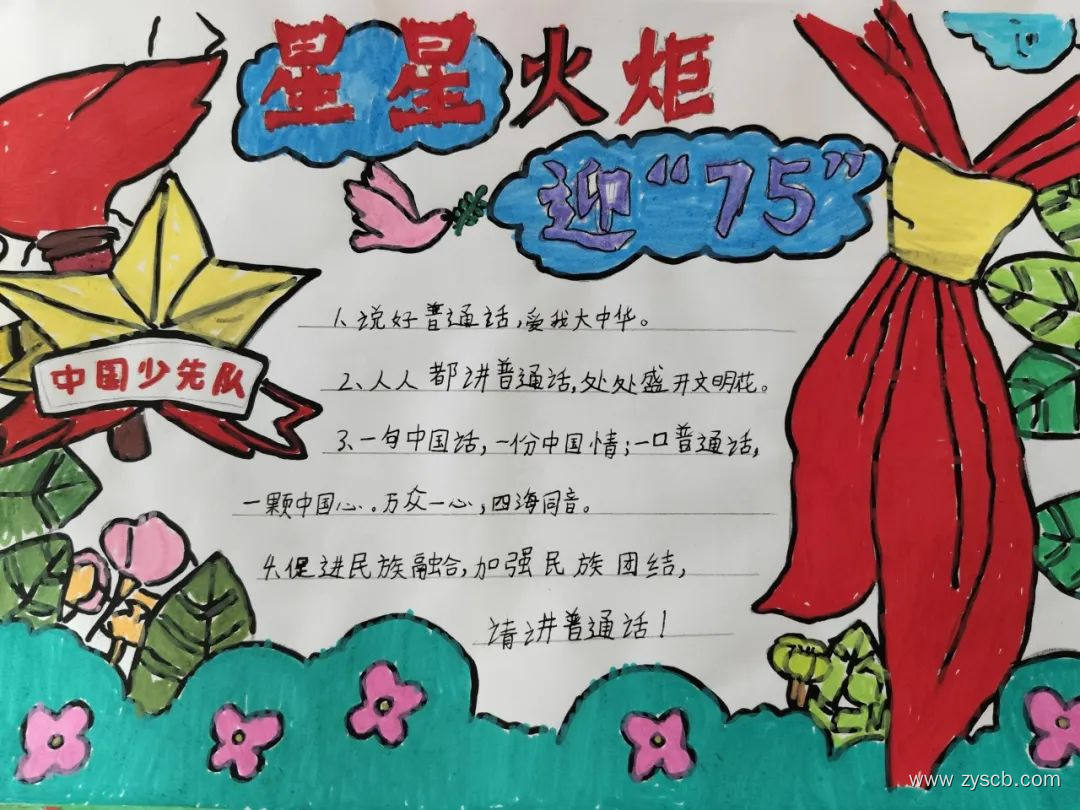 星星火炬
迎“75”
中国少先队
1、说好普通话,爱我大中华。
2、人人都讲普通话,处处盛开文明花。
3、一句中国话,一份中国情;一口普通话,
一颗中国心。万众一心,四海同音。
4、促进民族融合,加强民族团结,
请讲普通话!
www.zyscb.com